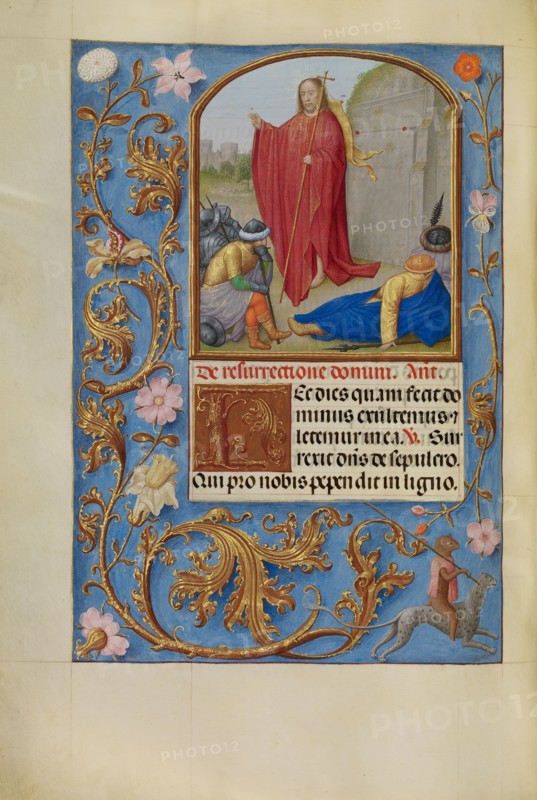 De resurrectione domini. Añt
Ec dies quam fecit do
minus exultemus ⁊
letemur in ea. V. Sur
rexit dñs de sepulcro.
Qui pro nobis pependit in ligno.
PHOTO12